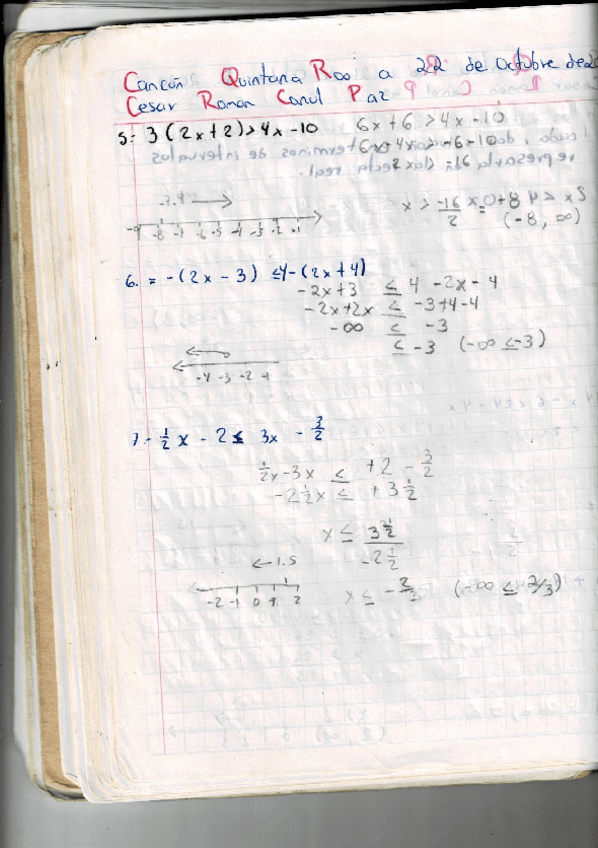 Cancún Quintana Roo a 22 de Octubre de
Cesar Roman Canul Paz
5= 3(2x+2)>4x-10 6x+6>4x-10
x > -16/2 = -8
(-8, ∞)
-9 -8 -7 -6 -5 -4 -3 -2 -1
6. = -(2x-3) ≤4-(2x+4)
-2x+3 ≤ 4 -2x-4
-2x+2x ≤ -3+4-4
-∞ ≤ -3
≤ -3 (-∞ ≤-3)
-4 -3 -2 -1
7.- 1/2 x - 2 ≤ 3x - 3/2
1/2x-3x ≤ +2 - 3/2
-2 1/2 x ≤ +3 1/2
x ≤ 3 1/2 / -2 1/2
← 1.5
-2 -1 0 1 2
(-∞ ≤ 2/3)